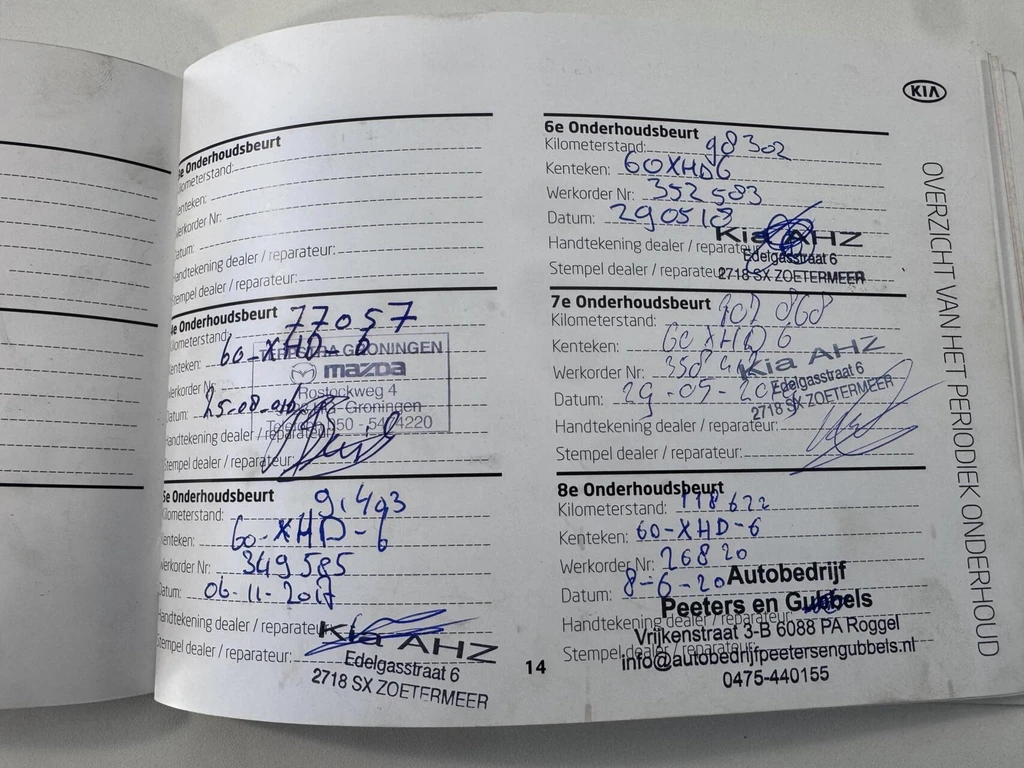 e Onderhoudsbeurt
Kilometerstand:
Kenteken:
Werkorder Nr:
Datum:
Handtekening dealer / reparateur:
Stempel dealer / reparateur:
4e Onderhoudsbeurt
Kilometerstand: 77057
Kenteken: 60-XHD-6
GRONINGEN
mazda
Werkorder Nr:
Rostockweg 4
Datum: 25-08-
Groningen
Handtekening dealer / reparateur:
050 - 4220
Stempel dealer / reparateur:
5e Onderhoudsbeurt
Kilometerstand: 91493
Kenteken: 60-XHD-6
Werkorder Nr: 349585
Datum: 06-11-2017
Handtekening dealer / reparateur:
Kia AHZ
Stempel dealer / reparateur:
Edelgasstraat 6
2718 SX ZOETERMEER
14
KIA
6e Onderhoudsbeurt
Kilometerstand: 98302
Kenteken: 60XHD6
Werkorder Nr: 352583
Datum: 290518
Handtekening dealer / reparateur
Kia AHZ
Edelgasstraat 6
Stempel dealer / reparateur
2718 SX ZOETERMEER
7e Onderhoudsbeurt
Kilometerstand: 868
Kenteken: 60XHD6
Werkorder Nr:
Kia AHZ
Datum: 29-05-20
Edelgasstraat 6
2718 SX ZOETERMEER
Handtekening dealer / reparateur:
Stempel dealer / reparateur:
8e Onderhoudsbeurt
Kilometerstand: 118622
Kenteken: 60-XHD-6
Werkorder Nr: 26820
Datum: 8-6-20
Autobedrijf
Peeters en Gubbels
Handtekening dealer / reparateur:
Vrijkenstraat 3-B 6088 PA Roggel
Stempel dealer / reparateur:
info@autobedrijfpeetersengubbels.nl
0475-440155
OVERZICHT VAN HET PERIODIEK ONDERHOUD